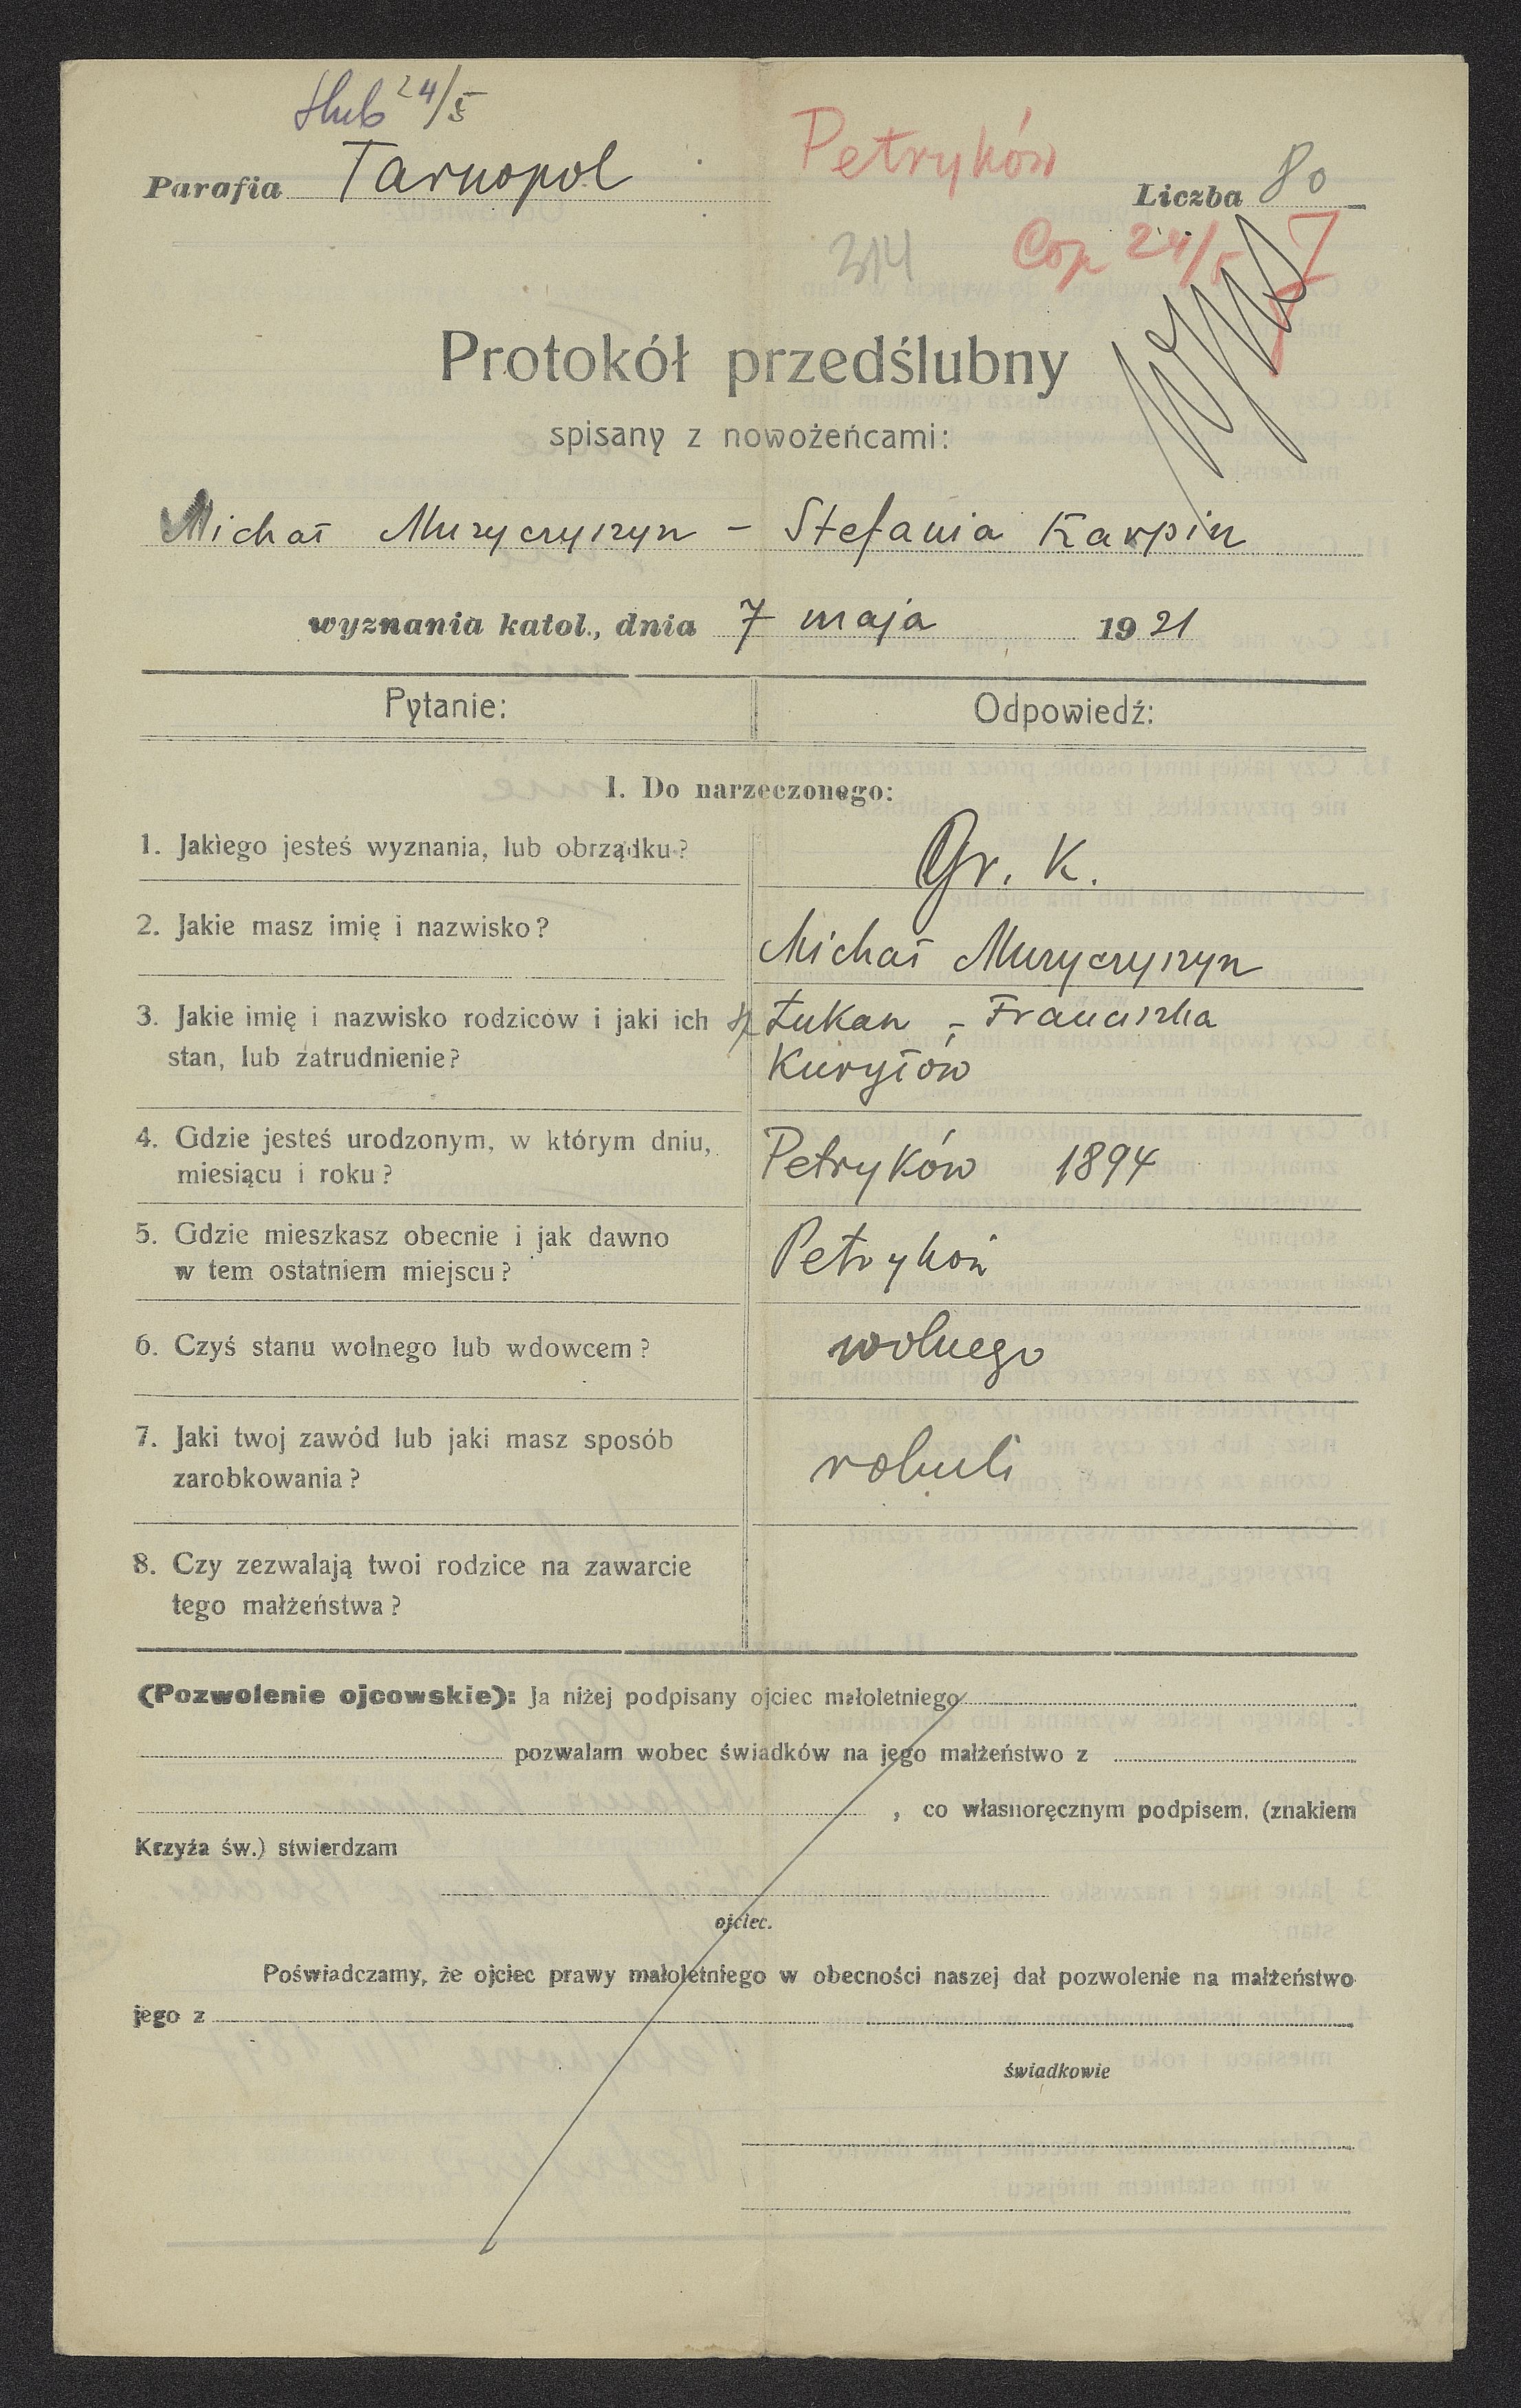 Ślub 24/5
Parafia Tarnopol
Petryków
Liczba 80
314
Cop 24/5
Protokół przedślubny
spisany z nowożeńcami:
Michał Muzyczyszyn – Stefania Karpin
wyznania katol., dnia 7 maja 1921
Pytanie: Odpowiedź:
I. Do narzeczonego:
1. Jakiego jesteś wyznania, lub obrządku? Gr. K.
2. Jakie masz imię i nazwisko? Michał Muzyczyszyn
3. Jakie imię i nazwisko rodziców i jaki ich Łukan – Franciszka
stan, lub zatrudnienie? Kuryłów
4. Gdzie jesteś urodzonym, w którym dniu,
miesiącu i roku? Petryków 1894
5. Gdzie mieszkasz obecnie i jak dawno
w tem ostatniem miejscu? Petryków
6. Czyś stanu wolnego lub wdowcem? wolnego
7. Jaki twoj zawód lub jaki masz sposób
zarobkowania?
8. Czy zezwalają twoi rodzice na zawarcie
tego małżeństwa?
(Pozwolenie ojcowskie): Ja niżej podpisany ojciec małoletniego
pozwalam wobec świadków na jego małżeństwo z
, co własnoręcznym podpisem, (znakiem
Krzyża św.) stwierdzam
ojciec.
Poświadczamy, że ojciec prawy małoletniego w obecności naszej dał pozwolenie na małżeństwo
jego z
świadkowie